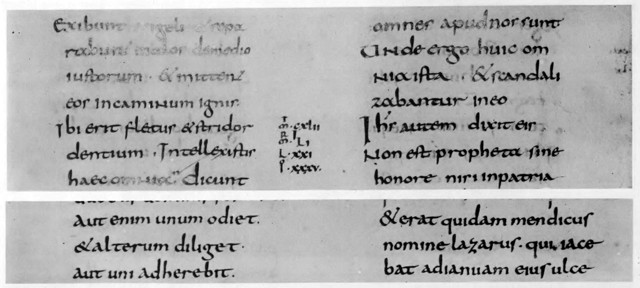 Exibunt angeli & sepa
rabunt malos demedio
iustorum · & mittent
eos incaminum ignis
Ibi erit fletus & stridor
dentium · Intellexistis
haec omnia dicunt
M · CXLII
M · LI
L · XXI
P · XXXV.
omnes apud nos sunt
Unde ergo huic om
nia ista · & scandali
zabantur in eo
Ihs autem dixit eis
Non est propheta sine
honore nisi inpatria
aut enim unum odiet.
& alterum diliget ·
aut uni adherebit.
& erat quidam mendicus
nomine lazarus · qui iace
bat adianuam eius ulce